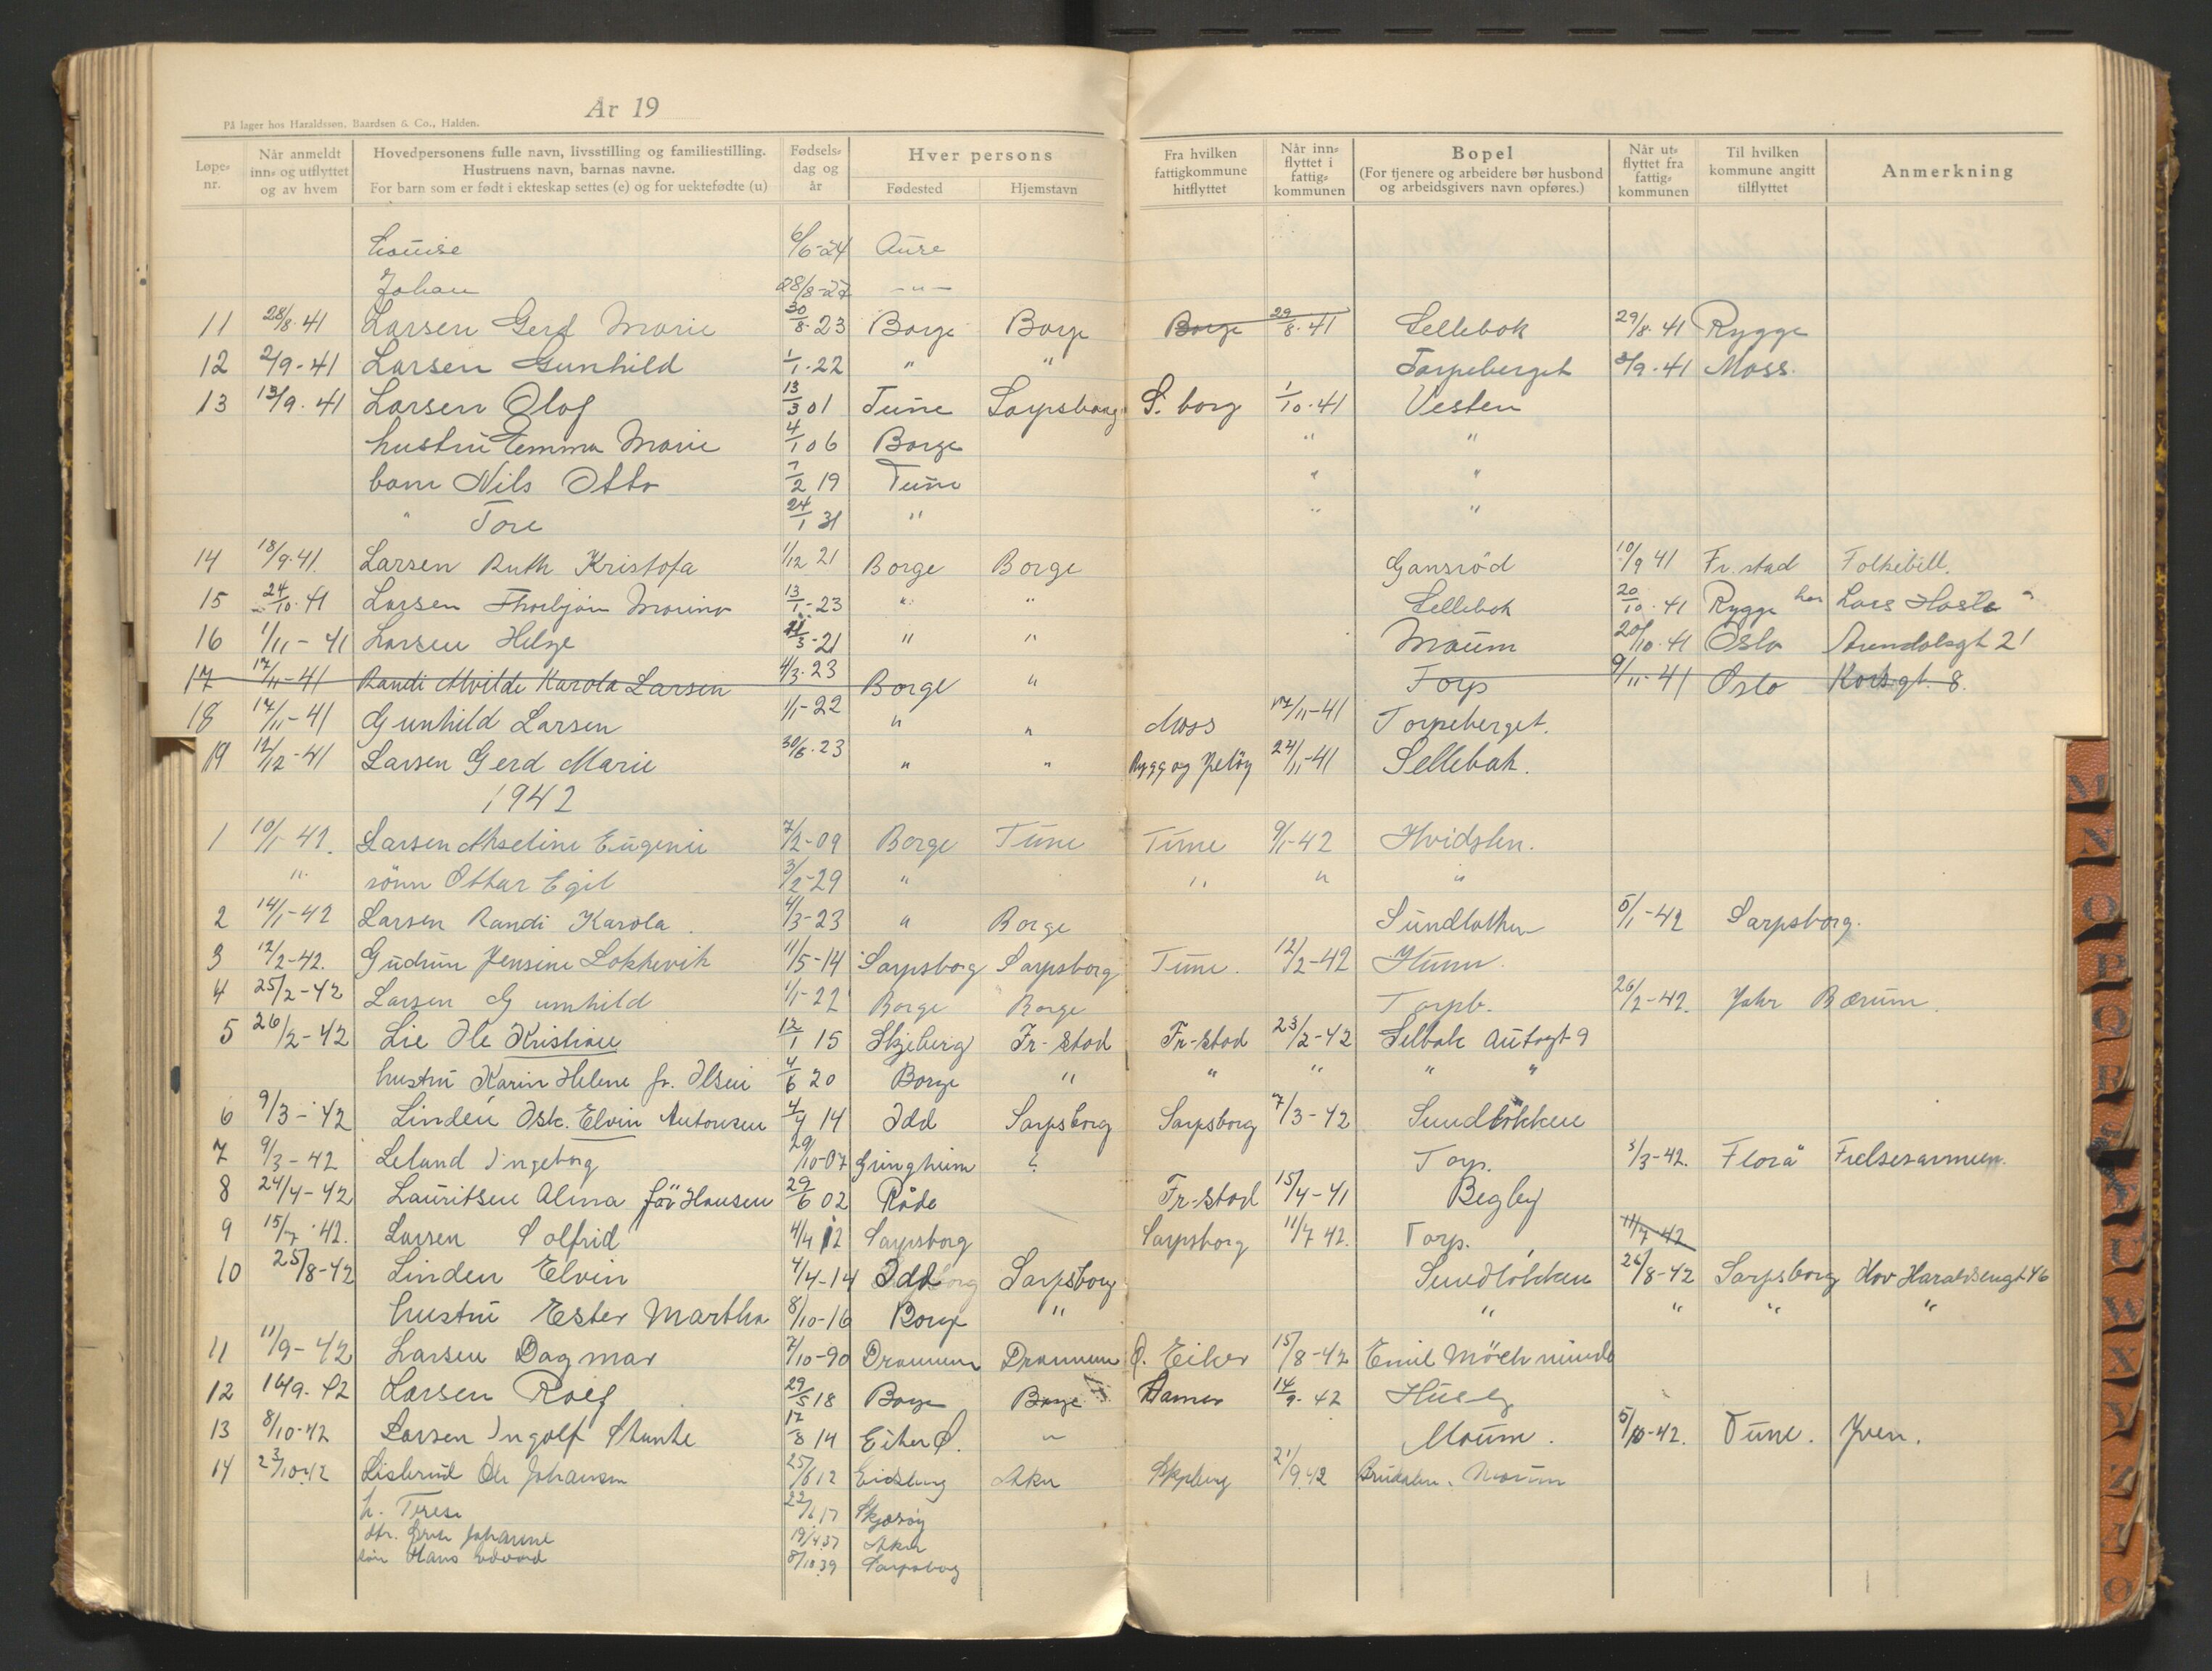 År 19
På lager hos Haraldssøn, Baardsen & Co., Halden.
Løpe-nr. | Når anmeldt inn- og utflyttet og av hvem | Hovedpersonens fulle navn, livsstilling og familiestilling. Hustruens navn, barnas navne. For barn som er født i ekteskap settes (e) og for uektefødte (u) | Fødsels-dag og år | Hver persons Fødested | Hjemstavn | Fra hvilken fattigkommune hitflyttet | Når inn-flyttet i fattig-kommunen | Bopel (For tjenere og arbeidere bør husbond og arbeidsgivers navn opføres.) | Når ut-flyttet fra fattig-kommunen | Til hvilken kommune angitt tilflyttet | Anmerkning
Louise 6/6-24 Aure
Johan 28/8-27 -"-
11 28/8-41 Larsen Gerd Marie 30/8-23 Borge Borge Borge 29/8-41 Sellebok 29/8-41 Rygge
12 2/9-41 Larsen Gunhild 1/1-22 " " Torpeberget 3/9-41 Moss.
13 13/9-41 Larsen Olaf 13/3 01 Tune Sarpsborg S. borg 1/10-41 Vesten
hustru Emma Marie 4/1 06 Borge " "
barn Nils Otto 7/2 19 Tune " "
" Tore 24/1 31 " " "
14 18/9-41. Larsen Ruth Kristofa 1/12 21 Borge Borge Gansrød 10/9 41 Fr.stad Folkebill.
15 24/10-41 Larsen Thorbjørn Marino 13/1-23 " " Sellebok 20/10-41 Rygge hos Lars Hasle
16 1/11-41 Larsen Helge 21/3-21 " " Moum 20/10-41 Oslo Arendalsgt 21
17 17/11-41 Randi Alvilde Karola Larsen 4/3-23 Borge " Torp 9/11-41 Oslo Korsgt. 8.
18 17/11-41 Gunhild Larsen 1/1-22 " " Moss 17/11-41 Torpeberget.
19 12/12-41 Larsen Gerd Marie 30/8-23 " " Rygg og Jeløy 24/11-41 Sellebak.
1942
1 10/1-42. Larsen Akseline Eugenie 7/2-09 Borge Tune Tune 9/1-42 Hvidsten.
" sønn Ottar Egil 3/2-29 " " " "
2 14/1-42 Larsen Randi Karola. 4/3-23 " Borge Sundløkken 5/1-42 Sarpsborg.
3 12/2-42. Gudrun Jensine Løkkevik 11/5-14 Sarpsborg Sarpsborg Tune. 12/2-42 Hunn.
4 25/2-42 Larsen Gunhild 1/1-22 Borge Borge Torpb. 26/2-42. Jahr Bærum.
5 26/2-42 Lie Ole Kristian 12/1 15 Skjeberg Fr-stad Fr-stad 23/2-42 Selbak Autogt 9
hustru Karin Helene f. Olsen 4/6 20 Borge " " " " "
6 9/3-42 Linden Osk. Elvin Antonsen 4/4 14 Idd Sarpsborg Sarpsborg 7/3-42 Sundløkken
7 9/3-42 Leland Ingeborg 29/10-07 Gringheim ? Torp. 3/3-42. Flora Frelsesarmeen.
8 24/4-42 Lauritsen Alma før Hansen 29/6 02 Råde Fr-stad 15/4-41 Begby
9 15/7-42. Larsen Solfrid 4/4 12 Sarpsborg Sarpsborg 11/7 42. Torp. 11/7-42
10 25/8-42 Linden Elvin 4/4-14 Idd Sarpsborg Sundløkken 26/8-42 Sarpsborg Hov Haraldsengt 46
hustru Ester Martha 8/10-16 Borge " " " " "
11 11/9-42 Larsen Dagmar 7/10-90 Drammen Drammen Ø. Eiker 15/8-42 Emil Mörch minde
12 16/9-42 Larsen Rolf 29/5 18 Borge Borge Hamar 14/9-42 Huseby
13 8/10-42 Larsen Ingolf 17/8 14 Eiker Ø. " Moum. 5/10-42. Tune. Yven.
14 23/10 42 Lisbrud Ole Johansen 25/6 12 Eidsberg Aker Skjeberg 21/9 42 Brudalen. Moum
h. Terese 22/6 17 Skjærøy
dtr. Grete Johanne 19/4 37 Aker
sønn Hans Edvard 8/10 39 Sarpsborg